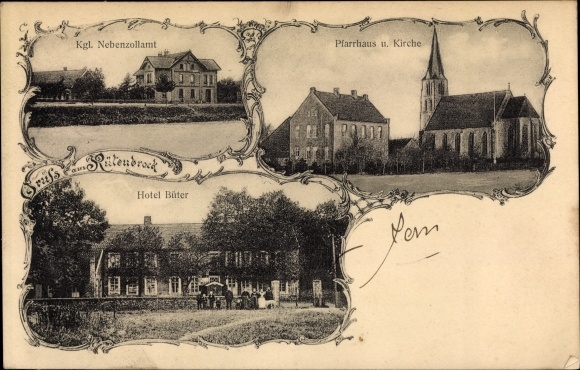 Kgl. Nebenzollamt
Pfarrhaus u. Kirche
Gruss aus Rütenbrock
Hotel Büter